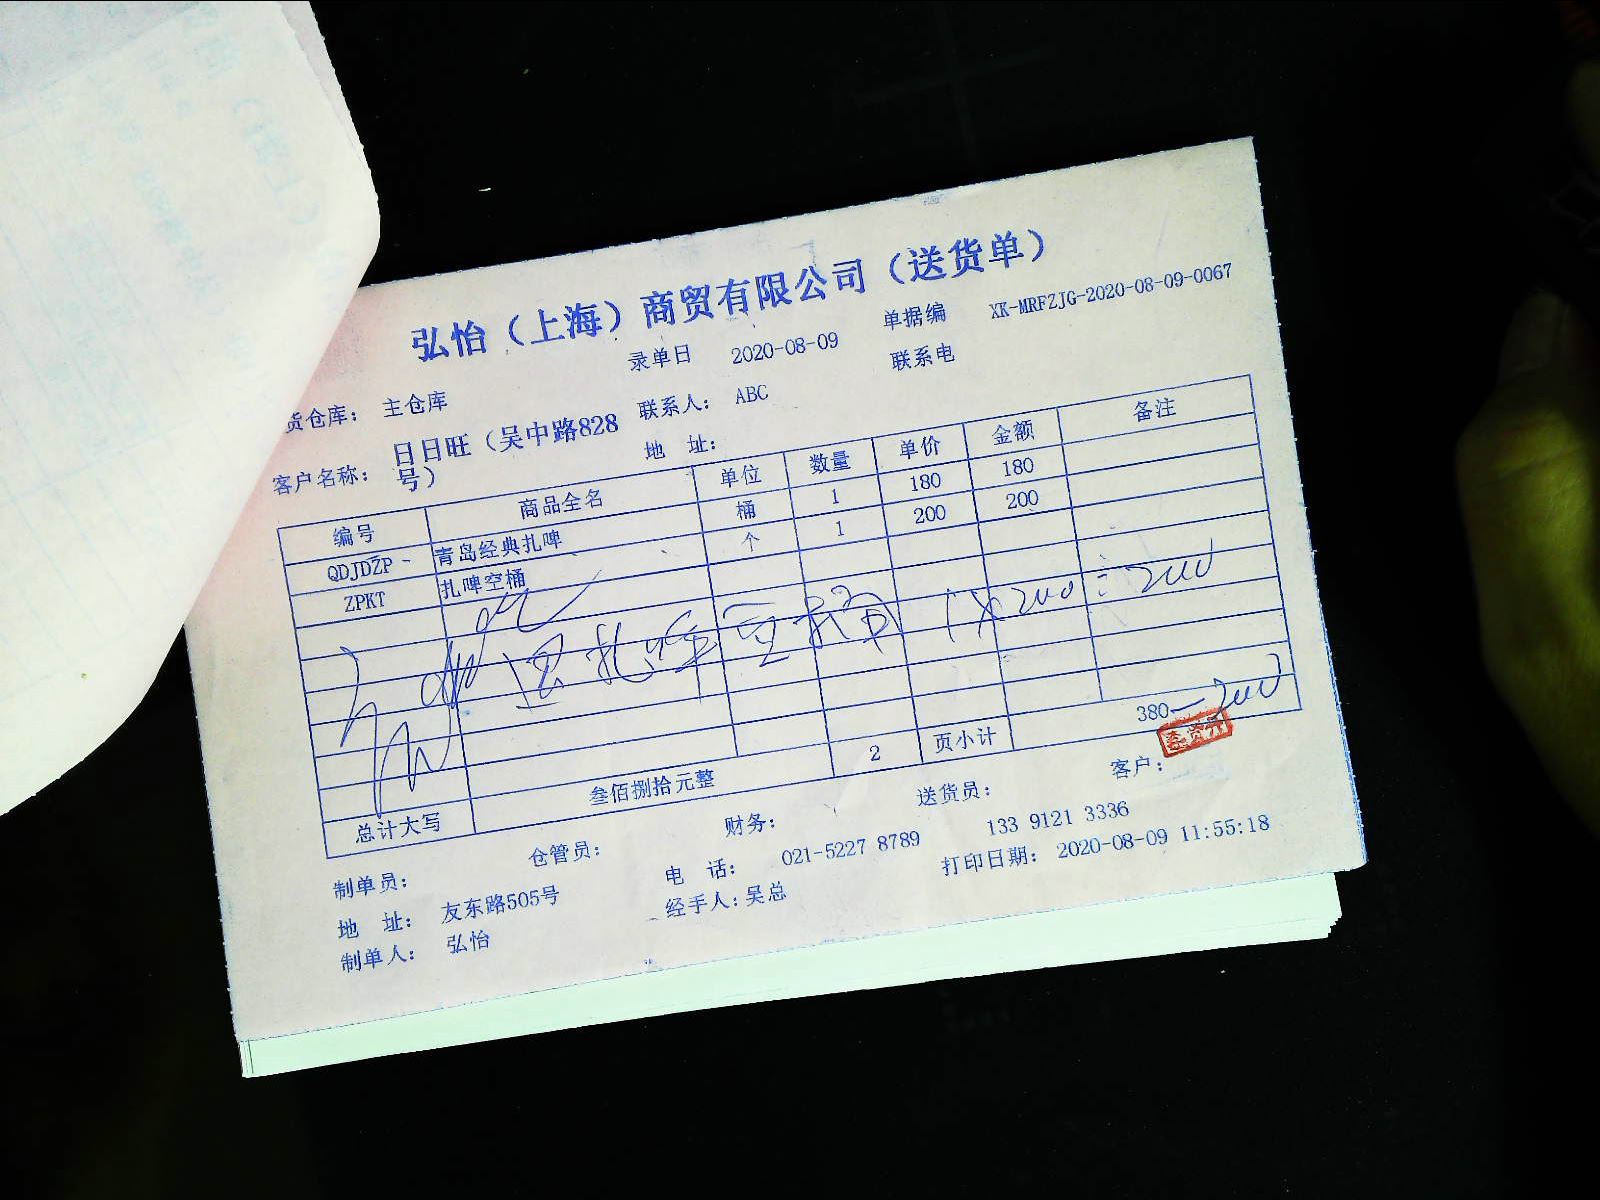 弘怡（上海）商贸有限公司（送货单）
录单日 2020-08-09 单据编 XK-MRFZJG-2020-08-09-0067
货仓库： 主仓库 联系人： ABC 联系电
客户名称： 日日旺（吴中路828号） 地 址：
编号 商品全名 单位 数量 单价 金额 备注
QDJDZP- 青岛经典扎啤 桶 1 180 180
ZPKT 扎啤空桶 个 1 200 200
扎啤空桶 1×200=200
380-200
总计大写 叁佰捌拾元整 2 页小计
制单员： 仓管员： 财务： 送货员： 客户：
地 址： 友东路505号 电 话： 021-5227 8789 133 9121 3336
制单人： 弘怡 经手人：吴总 打印日期： 2020-08-09 11:55:18